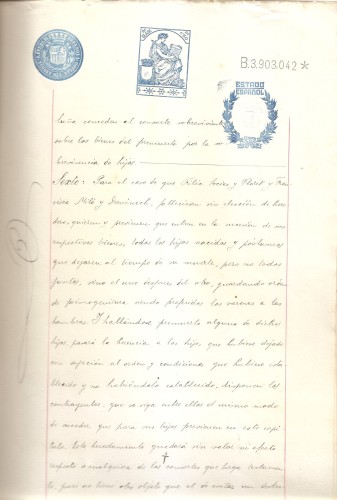 B.3.903.042 *
ESTADO
ESPAÑOL
luña conceden al consorte sobreviviente
sobre los bienes del premuerto por la
brevivencia de hijos.
Sexto: Para el caso de que Félix
y Fran-
cisca y Domenech, fallecieren sin elección de here-
dero, quieren y previenen que entren en la sucesión de sus
respectivos bienes, todos los hijos nacidos y póstumos
que dejaren al tiempo de su muerte, pero no todos
juntos, sino el uno después del otro, guardando orden
de primogenitura, siendo preferidos los varones a las
hembras. Y hallándose premuerto alguno de dichos
hijos, pasará la herencia a los hijos que hubiere dejado
con sujeción al orden y condiciones que hubiere esta-
blecido y no habiéndolo establecido, disponen los
contrayentes, que se siga entre ellos el mismo modo
de suceder que para sus hijos previenen en este capí-
tulo. Este heredamiento quedará sin valor ni efecto
respecto a cualquiera de los consortes que haga testamen-
to, pues no tiene otro objeto que el de evitar un